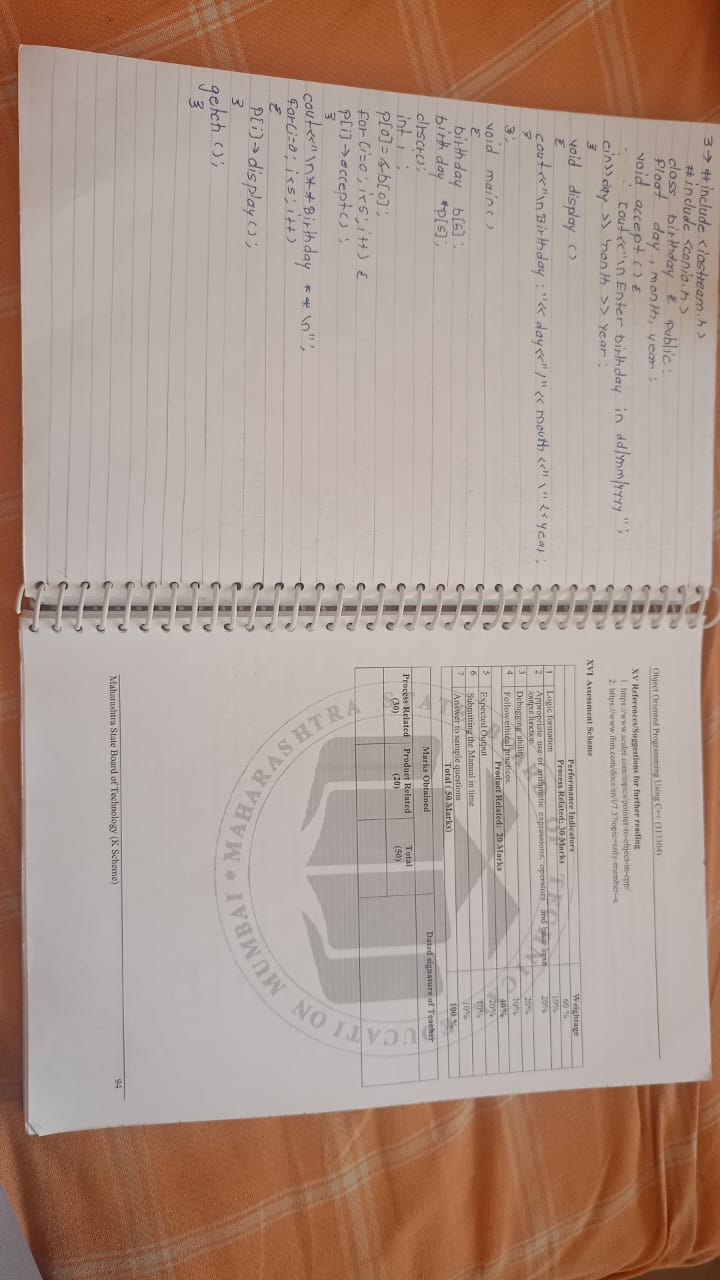 3→ #include <iostream.h>
#include <conio.h>
class birthday { public:
float day, month, year;
void accept () {
cout<<"\n Enter birthday in dd/mm/yyyy";
cin>>day >> month >> year;
}
void display ()
{
cout<<"\n Birthday : "<< day<<"/"<< mouth <<"\"<<year;
}
};
void main()
{
birthday b[5];
birthday *p[5];
clrscr();
int i ;
p[0]=&b[0];
for(i=0; i<5; i++) {
p[i]→accept();
}
cout<<"\n**Birthday ** \n";
for(i=0; i<5; i++)
{
p[i]→display();
}
getch ();
}
Object Oriented Programming Using C++ (313304)
XV References/Suggestions for further reading
1. https://www.scaler.com/topics/pointer-to-object-in-cpp/
2. https://www.ibm.com/docs/en/i/7.3?topic=only-member--c
XVI Assessment Scheme
Performance Indicators Weightage
Process Related: 30 Marks 60 %
1 Logic formation 10%
2 Appropriate use of arithmetic expressions, operators and basic input /output function. 20%
3 Debugging ability 20%
4 Follow ethical practices. 10%
Product Related: 20 Marks 40%
5 Expected Output 20%
6 Submitting the Manual in time 10%
7 Answer to sample questions 10%
Total ( 50 Marks) 100 %
Marks Obtained Dated signature of Teacher
Process Related (30) Product Related (20) Total (50)
MAHARASHTRA STATE BOARD OF TECHNICAL EDUCATION MUMBAI *
Maharashtra State Board of Technology (K Scheme) 94